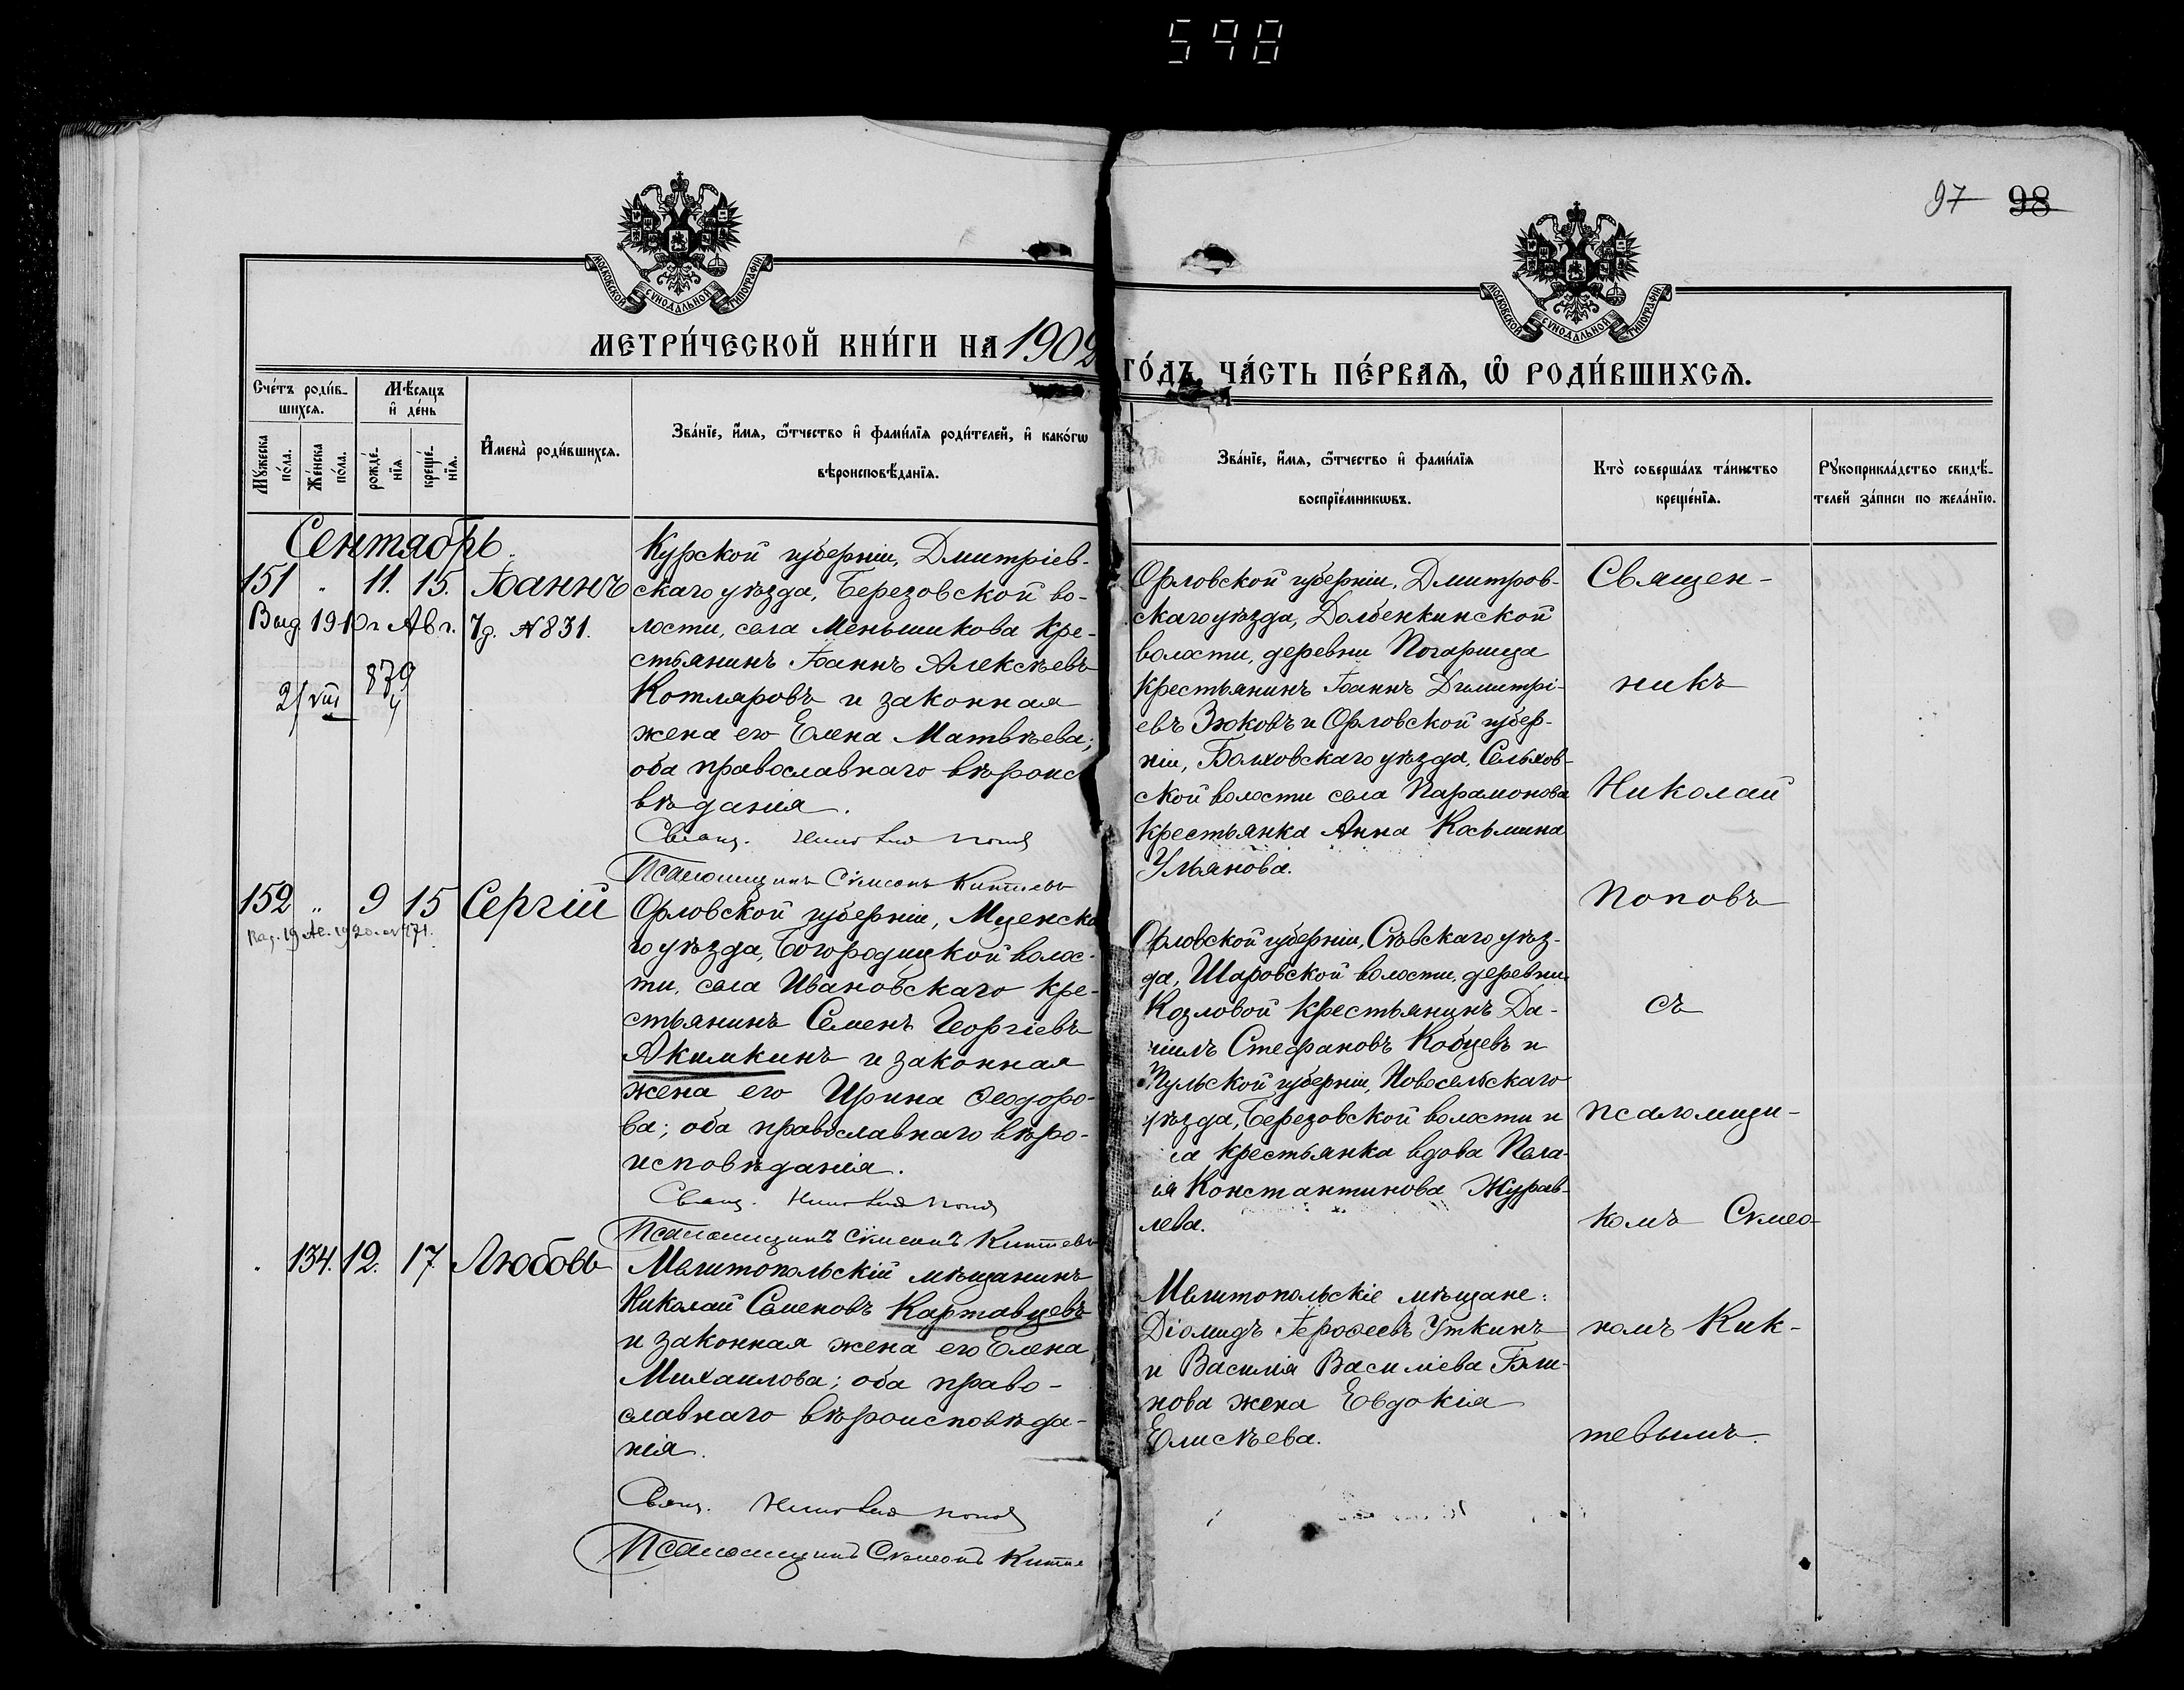 598
97 98
МОСКОВСКОЙ СѴНОДАЛЬНОЙ ТИПОГРАФІИ
МОСКОВСКОЙ СѴНОДАЛЬНОЙ ТИПОГРАФІИ
МЕТРИ́ЧЕСКОЙ КНИ́ГИ НА 1902
ГО́ДЪ, ЧА́СТЬ ПЕ́РВАЯ, Ѽ РОДИ́ВШИХСЯ.
Сче́тъ роди́в-
шихся.
Мѣ́сяцъ
и де́нь
Му́жеска
по́ла.
Же́нска
по́ла.
рожде́-
нїя
креще́-
нїя.
Имена̀ роди́вшихся.
Зва́нїе, и́мя, ѻ́тчество и фами́лїя роди́телей, и како́гѡ
вѣроисповѣ́данїя.
Зва́нїе, и́мя, ѻ́тчество и фами́лїя
воспрїе́мникѡвъ.
Кто̀ соверша́лъ та́инство
креще́нїя.
Рукоприкла́дство свидѣ́-
телей за́писи по жела́нїю.
Сентябрь.
151 " 11. 15. Іоаннъ
Выд. 1910 г. Авг. 7 д. № 831.
879
Курской губерніи, Дмитріев-
скаго уѣзда, Березовской во-
лости, села Меньшикова кре-
стьянинъ Іоаннъ Алексѣевъ
Котляровъ и законная
жена его Елена Матвѣева;
оба православнаго вѣроис
вѣданія.
Свящ. Николай Попов
Псаломщикъ Сѵмеонъ Киктевъ
Орловской губерніи, Дмитров-
скаго уѣзда, Долбенкинской
волости, деревни Погарища
крестьянинъ Іоаннъ Димитрі-
евъ Зюковъ и Орловской губер-
ніи, Болховскаго уѣзда, Сельхов-
ской волости села Парамонова
крестьянка Анна Косьмина
Ульянова.
152 " 9 15 Сергій
Орловской губерніи, Мценска
го уѣзда, Богородицкой волос-
ти, села Ивановскаго кре-
стьянинъ Семенъ Георгіевъ
Акимкинъ и законная
жена его Ирина Ѳеодоро-
ва; оба православнаго вѣро-
исповѣданія.
Свящ. Николай Попов
Псаломщикъ Сѵмеонъ Киктевъ
Орловской губерніи, Сѣвскаго уѣз-
да, Шаровской волости, деревни
Козловой крестьянинъ Да-
ніилъ Стефановъ Кобцевъ и
Тульской губерніи, Новосельскаго
уѣзда, Березовской волости и
ла крестьянка вдова Пела-
ія Константинова Журав-
лева.
" 134. 12. 17 Любовь
Мелитопольскій мѣщанинъ
Николай Семеновъ Картавцевъ
и законная жена его Елена
Михаилова; оба право-
славнаго вѣроисповѣда-
нія.
Свящ. Николай Попов
Псаломщикъ Сѵмеонъ Китте
Мелитопольскіе мѣщане:
Діомидъ Іероѳеевъ Уткинъ
и Василія Василіева Бли-
нова жена Евдокія
Елисѣева.
Священ-
никъ
Николай
Поповъ
съ
псаломщи-
комъ Сѵмео-
номъ Кик-
тевымъ.